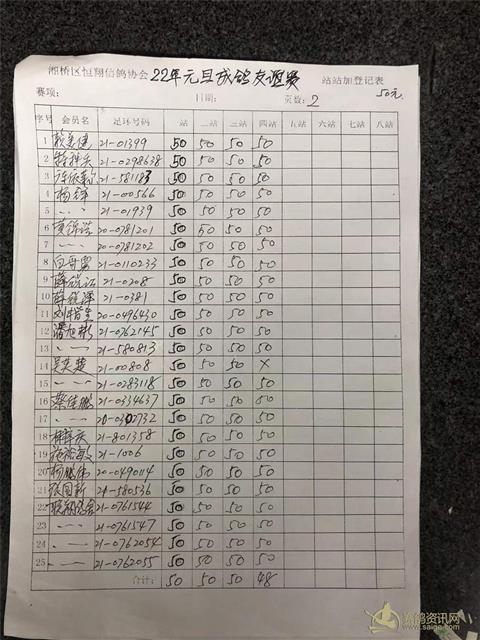 湘桥区恒翔信鸽协会 22年元旦成鸽友谊赛 站站加登记表
赛项: 日期: 页数: 2 50元
序号 会员名 足环号码 一站 二站 三站 四站 五站 六站 七站 八站
1 21-01399 50 50 50 50
2 21-0298638 50 50 50 50
3 21-581183 50 50 50 50
4 杨 21-00566 50 50 50 50
5 21-01939 50 50 50 50
6 20-0781201 50 50 50 50
7 20-0781202 50 50 50 50
8 21-0110233 50 50 50 50
9 21-0208 50 50 50 50
10 21-0381 50 50 50 50
11 刘 20-0496430 50 50 50 50
12 潘旭彬 21-0762145 50 50 50 50
13 21-580813 50 50 50 50
14 吴英楚 21-00808 50 50 50 X
15 21-0283118 50 50 50 50
16 蔡佳鹏 21-0334637 50 50 50 50
17 50 50 50 50
18 21-801358 50 50 50 50
19 21-1006 50 50 50 50
20 杨鹏伟 20-0490114 50 50 50 50
21 21-580536 50 50 50 50
22 21-0761544 50 50 50 50
23 21-0761547 50 50 50 50
24 21-0762054 50 50 50 50
25 21-0762055 50 50 50 50
合计: 50 50 50 48
赛鸽资讯网
www.saige.com